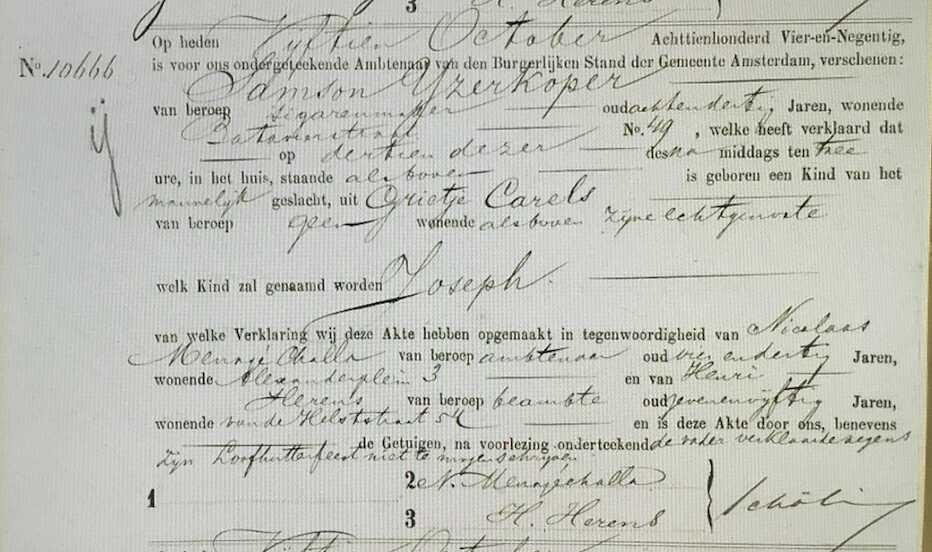 3 H. Herens
Op heden Vijftien October Achttienhonderd Vier-en-Negentig,
No. 10666 is voor ons ondergeteekende Ambtenaar van den Burgerlijken Stand der Gemeente Amsterdam, verschenen:
Samson IJzerkoper
van beroep sigarenmaker oud achtendertig Jaren, wonende
ij
Batavierstraat No. 49, welke heeft verklaard dat
op dertien dezer des na middags ten twee
ure, in het huis, staande als boven is geboren een Kind van het
mannelijk geslacht, uit Grietje Carels
van beroep geen wonende als boven zijne echtgenoote
welk Kind zal genaamd worden Joseph.
van welke Verklaring wij deze Akte hebben opgemaakt in tegenwoordigheid van Nicolaas
Menagé Challa van beroep ambtenaar oud vier endertig Jaren,
wonende Alexanderplein 3 en van Henri
Herens van beroep beambte oud zevenenvijftig Jaren,
wonende van de Helststraat 54 en is deze Akte door ons, benevens
de Getuigen, na voorlezing onderteekend de vader verklaarde wegens
zijn Loofhuttenfeest niet te mogen schrijven
2 N. Menagé Challa
1
3 H. Herens
Vijftien October